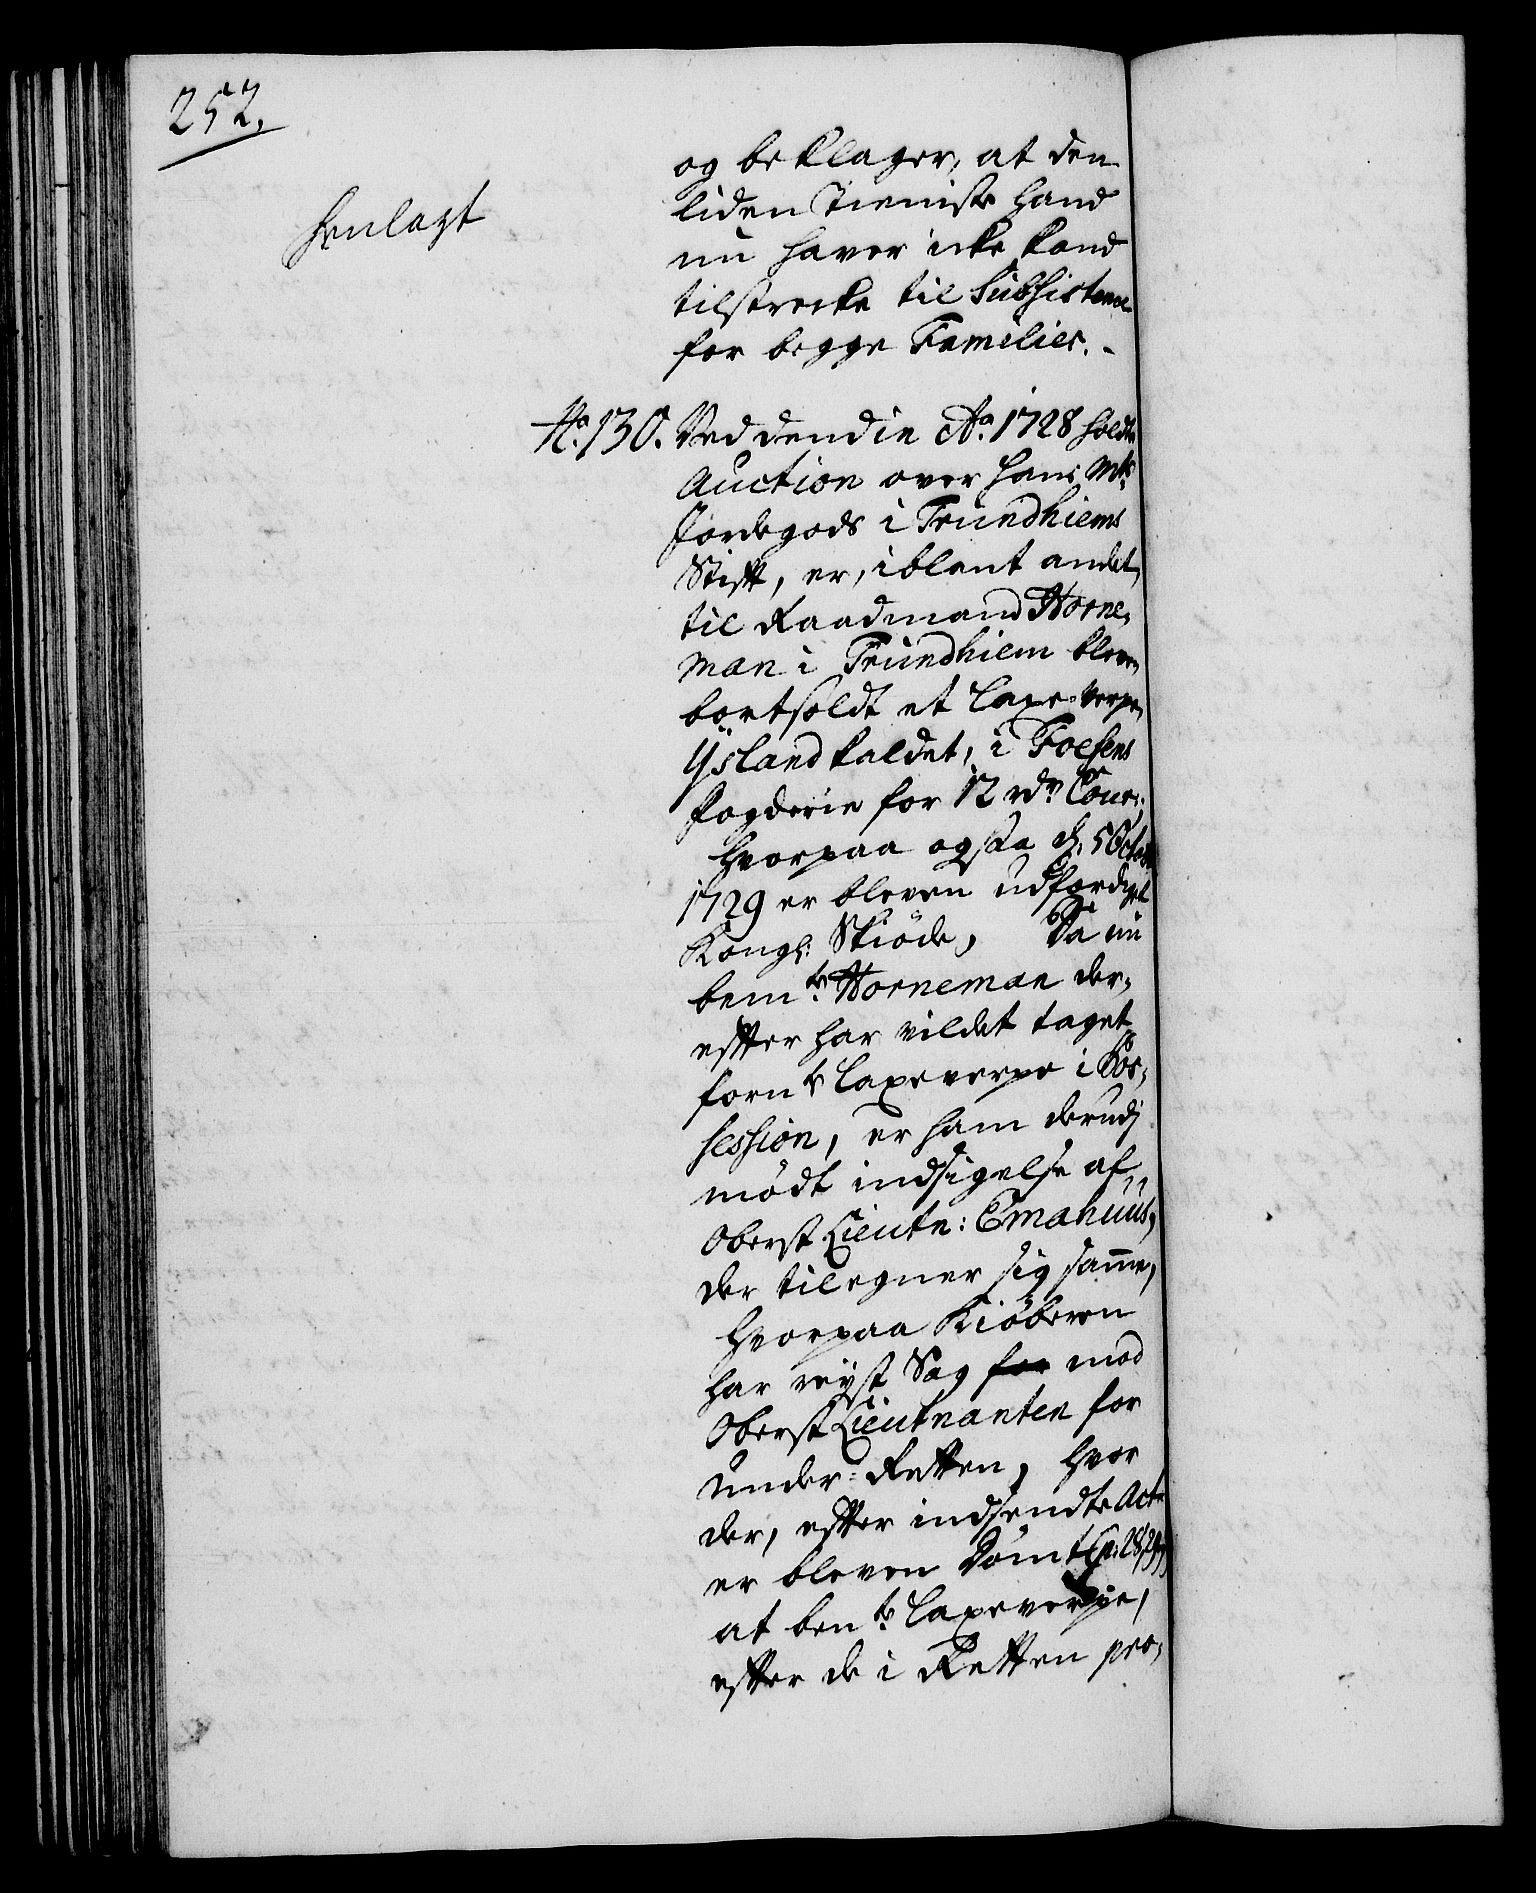 252.
henlagt
og beklager, at den
liden Tieniste hand
nu haver icke kand
tilstrecke til Subsistence
for begge Familier.
No. 130. Ved den die Ao. 1728 holdte
Auction over hans Mts
Jordegods i Trundhiems
Stift, er, iblant andet,
til Raadmand Horne,
man i Trundhiem bleven
bortsoldt et Laxe-verpe,
Ÿsland kaldet, i Foesens
fogderie for 12 rdr Cour:
hvorpaa ogsaa d. 5 Octobr
1729 er bleven udferdiget
Kongl: Skiöde, Da nu
bemte Horneman der,
efter har vildet taget
fornte Laxeverpe i Pos,
session, er ham derudj
mödt indsigelse af
Oberst Lieutn: Emahuus,
der tilegner sig samme,
hvorpaa Kiöberen
har reÿst Sag for mod
Oberst Lieutnanten for
Under-Retten, hvor
der, efter indsendte Act
er bleven Dömt (p: 28/29)
at bente Laxeverpe,
efter de i Retten pro,